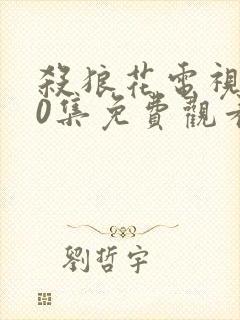 殺狼花電視
0集免費觀看
劉哲宇